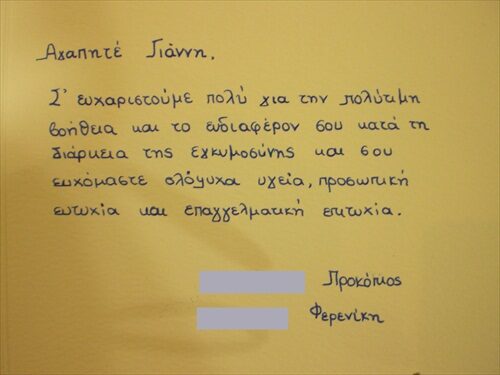 Αγαπητέ Γιάννη,
Σ' ευχαριστούμε πολύ για την πολύτιμη
βοήθεια και το ενδιαφέρον σου κατά τη
διάρκεια της εγκυμοσύνης και σου
ευχόμαστε ολόψυχα υγεία, προσωπική
ευτυχία και επαγγελματική επιτυχία.
Προκόπιος
Φερενίκη